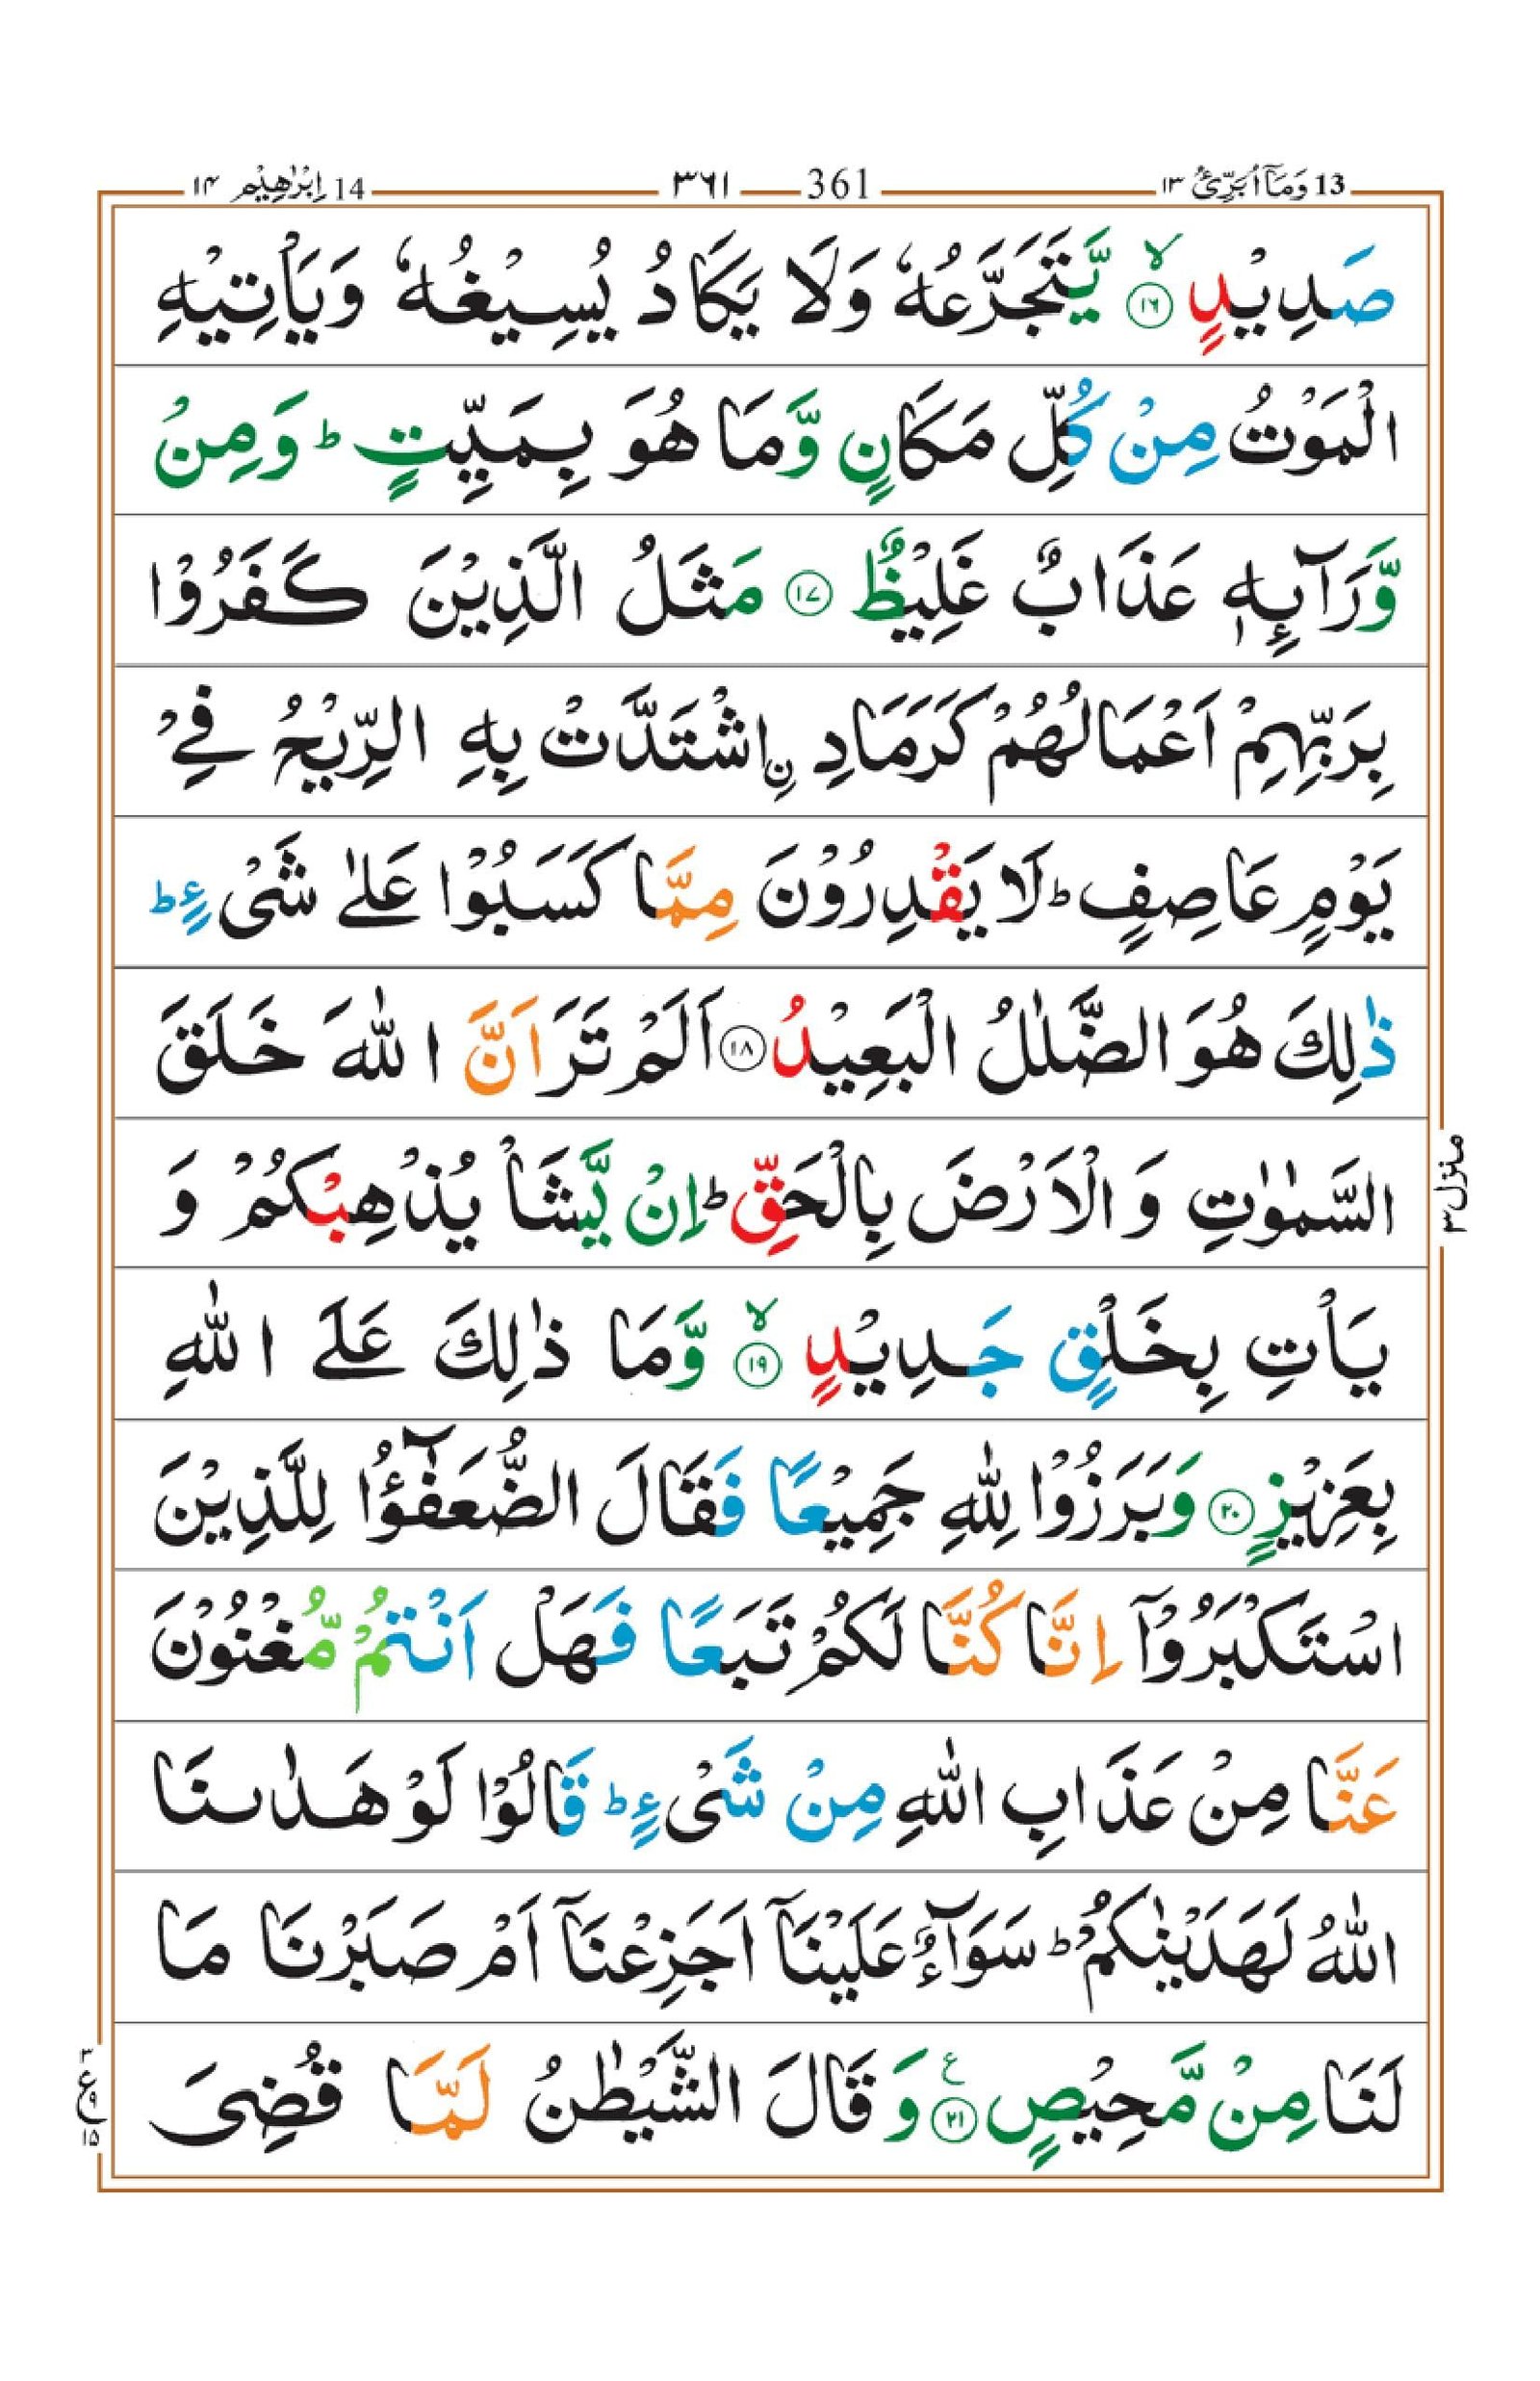 13 وَمَاۤ اُبَرِّئُ ١٣
361 ٣٦١
14 اِبْرٰهِيْم ١٤
صَدِيْدٍ ۙ‏﴿١٦﴾ يَّتَجَرَّعُهٗ وَلَا يَكَادُ يُسِيْغُهٗ وَيَاْتِيْهِ
الْمَوْتُ مِنْ كُلِّ مَكَانٍ وَّمَا هُوَ بِمَيِّتٍ ؕ وَمِنْ
وَّرَآئِهٖ عَذَابٌ غَلِيْظٌ ﴿١٧﴾ مَثَلُ الَّذِيْنَ كَفَرُوْا
بِرَبِّهِمْ اَعْمَالُهُمْ كَرَمَادِ ِۨاشْتَدَّتْ بِهِ الرِّيْحُ فِيْ
يَوْمٍ عَاصِفٍ ؕ لَا يَقْدِرُوْنَ مِمَّا كَسَبُوْا عَلٰى شَيْءٍ ؕ
ذٰلِكَ هُوَ الضَّلٰلُ الْبَعِيْدُ ﴿١٨﴾ اَلَمْ تَرَ اَنَّ اللّٰهَ خَلَقَ
السَّمٰوٰتِ وَالْاَرْضَ بِالْحَقِّ ؕ اِنْ يَّشَاْ يُذْهِبْكُمْ وَ
يَاْتِ بِخَلْقٍ جَدِيْدٍ ۙ﴿١٩﴾ وَّمَا ذٰلِكَ عَلَى اللّٰهِ
بِعَزِيْزٍ ﴿٢٠﴾ وَبَرَزُوْا لِلّٰهِ جَمِيْعًا فَقَالَ الضُّعَفٰٓؤُا لِلَّذِيْنَ
اسْتَكْبَرُوْۤا اِنَّا كُنَّا لَكُمْ تَبَعًا فَهَلْ اَنْتُمْ مُّغْنُوْنَ
عَنَّا مِنْ عَذَابِ اللّٰهِ مِنْ شَيْءٍ ؕ قَالُوْا لَوْ هَدٰىنَا
اللّٰهُ لَهَدَيْنٰكُمْ ؕ سَوَآءٌ عَلَيْنَاۤ اَجَزِعْنَاۤ اَمْ صَبَرْنَا مَا
لَنَا مِنْ مَّحِيْصٍ ﴿٢١﴾ ع وَقَالَ الشَّيْطٰنُ لَمَّا قُضِيَ
منزل ٣
٣ ع ١٥